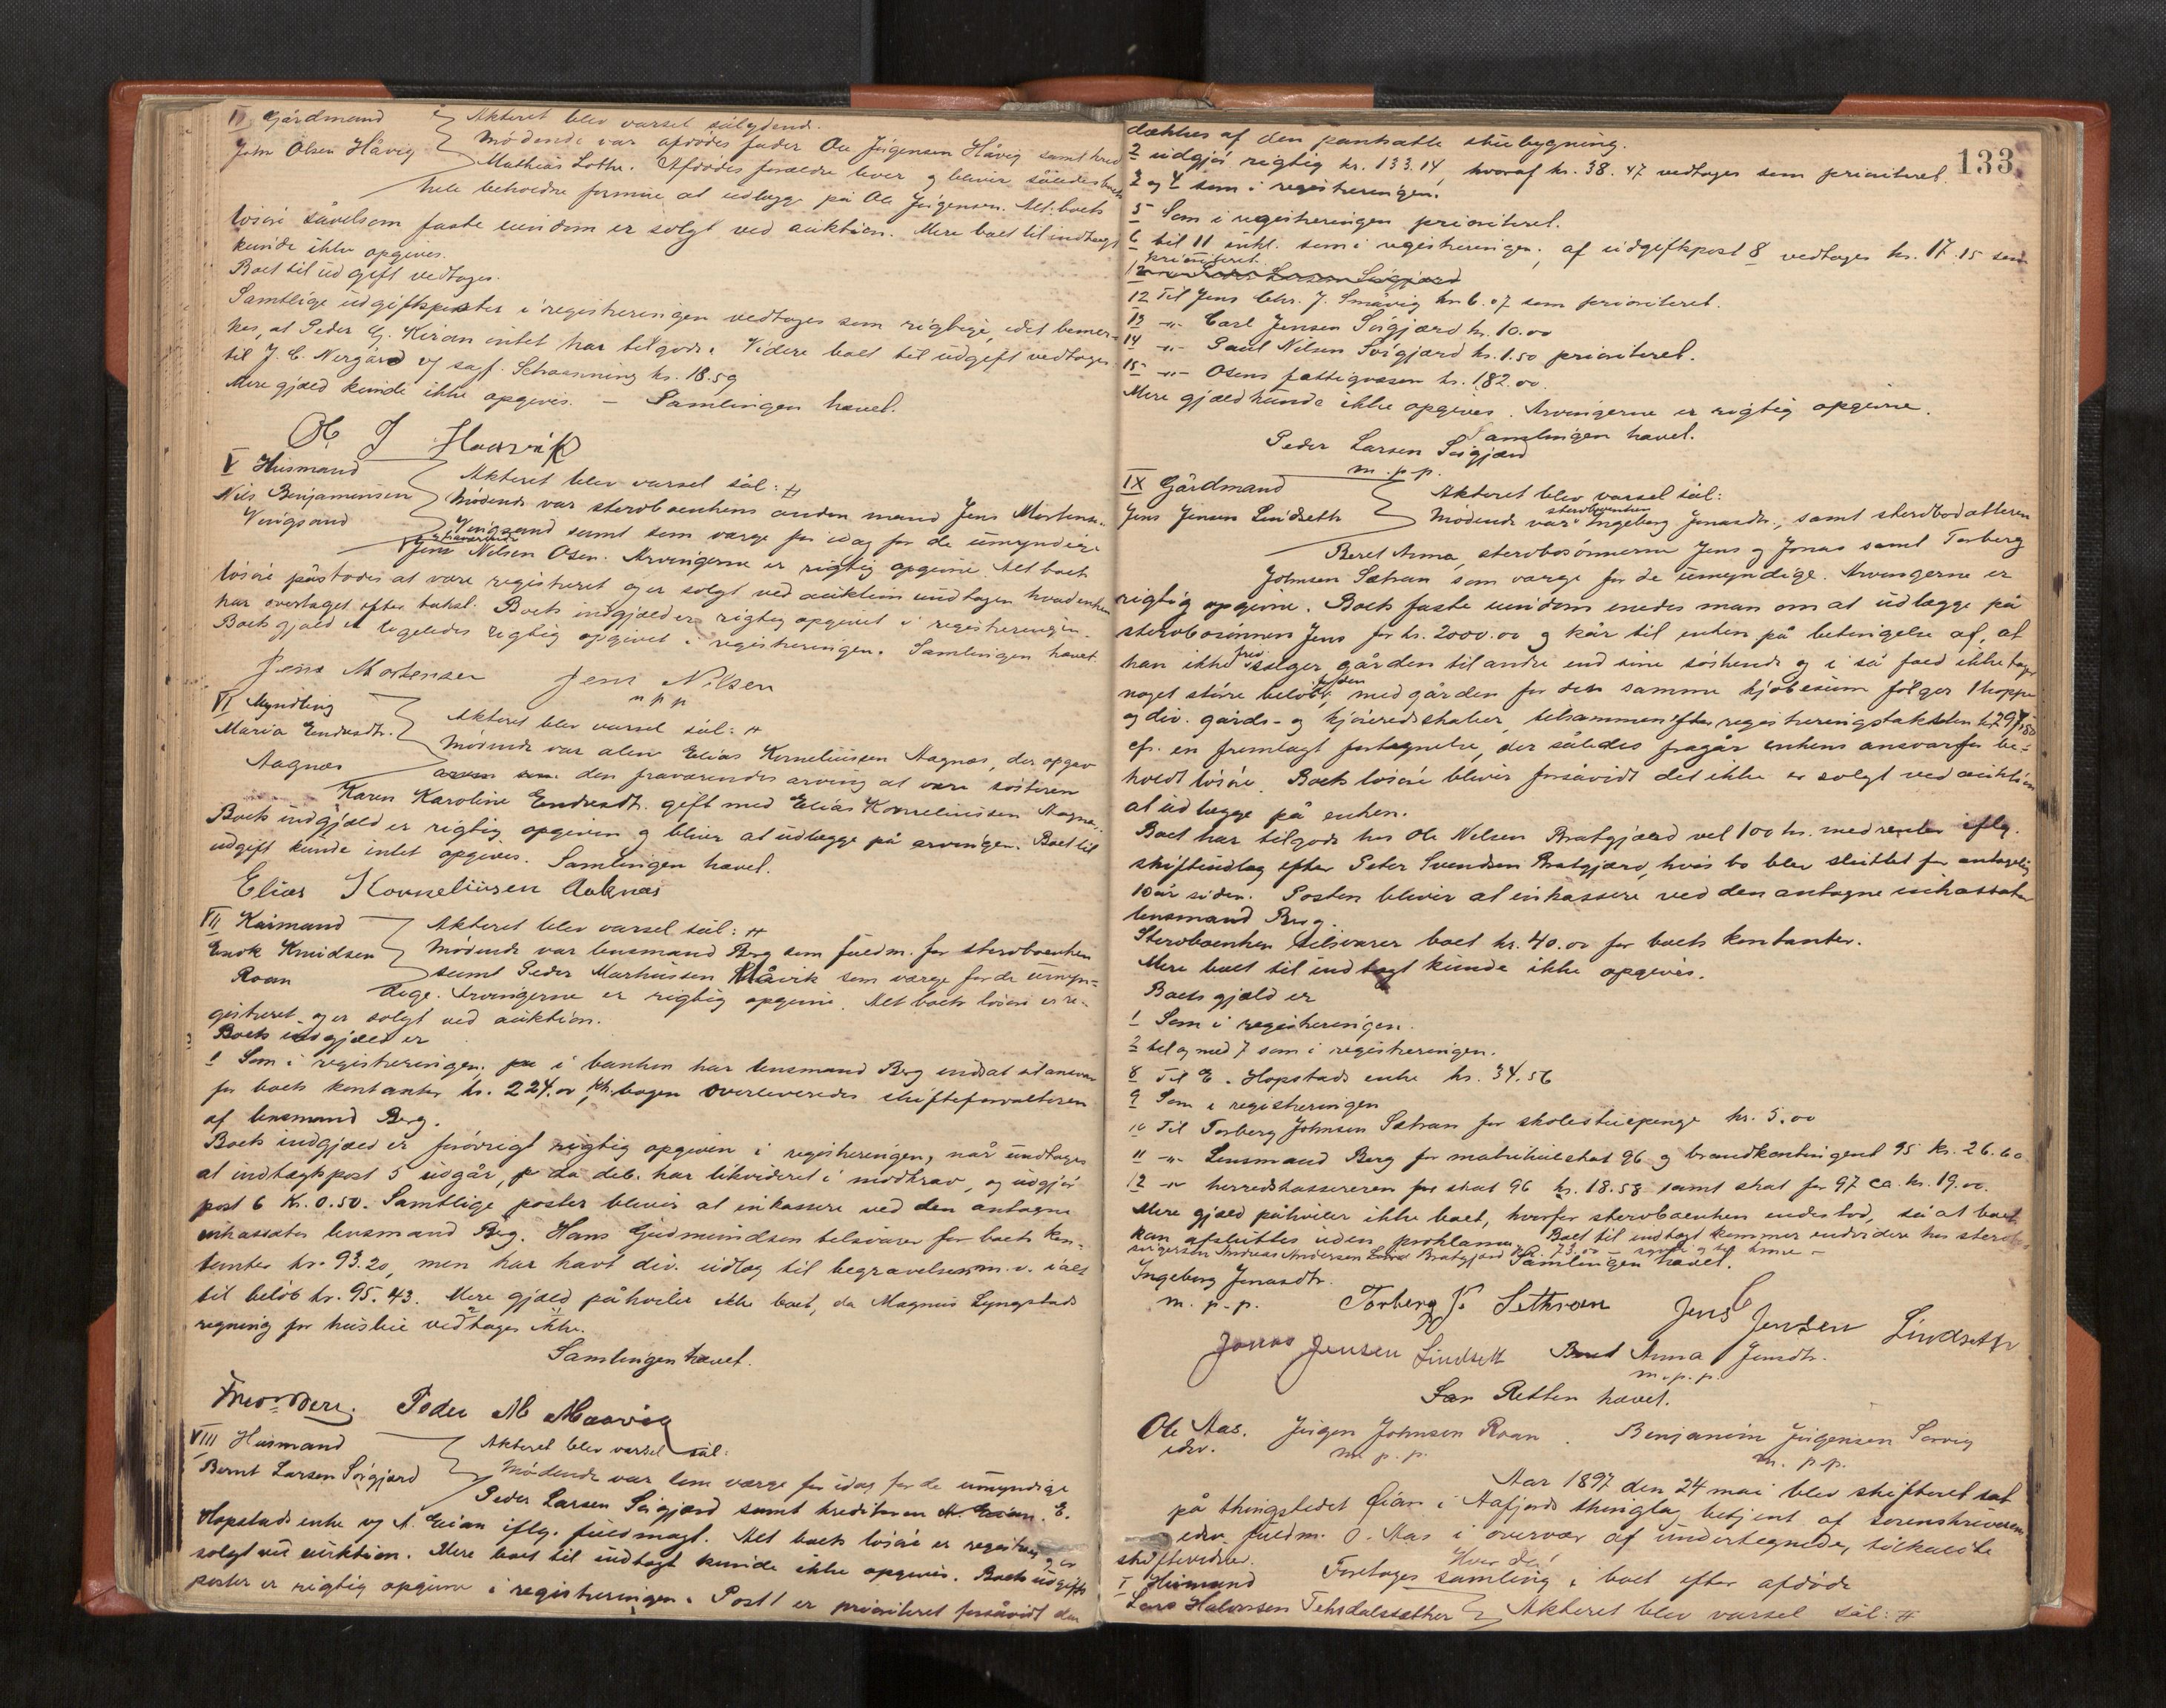 IV Gårdmand
John Olsen Håvig
Akteret blev varsel sålydende.
Mødende var afdødes fader Ole Jørgensen Håvig samt kred
Mathias Lothe. Afdødes forældre lever og bliver således boets
hele beholdne formue at udlægge på Ole Jørgensen. Alt boets
løsøre såvelsom faste eiendom er solgt ved auktion. Mere boet til indtægt
kunde ikke opgives.
Boet til udgift vedtages.
Samtlige udgiftsposter i registreringen vedtages som rigtige, idet bemer-
kes, at Peder G. Kiran intet har tilgode. Videre boet til udgift vedtages
til J. C. Nergård v/ sagf. Schaanning kr. 18.59
Mere gjæld kunde ikke opgives. — Samlingen hævet.
O J Haavik
V Husmand
Nils Benjaminsen
Vingsand
Akteret blev varsel sål:
Mødende var sterboenkens anden mand Jens Mortens.
Vingsand samt som værge for idag for de umyndige
Jens Nilsen Osen. Arvingerne er rigtig opgivne. Alt boets
løsøre påstodes at være registreret og er solgt ved auktion undtagen hvad enken
har overtaget efter takst. Boets indgjæld er rigtig opgivet i registreringen.
Boets gjæld er ligeledes rigtig opgivet i registreringen. Samlingen hævet.
Jens Mortensen Jens Nilsen
m p p
VI Myndling
Maria Endresdtr.
Aagnæs
Akteret blev varsel sål:
Mødende var alene Elias Korneliussen Aagnæs, der opgav
den fraværendes arving at være søsteren
Karen Karoline Endresdtr. gift med Elias Korneliussen Aagnæs.
Boets indgjæld er rigtig opgiven og bliver at udlægge på arvingen. Boet til
udgift kunde intet opgives. Samlingen hævet.
Elias Korneliusen Aaknæs
VII Kårmand
Enok Knudsen
Roan
Akteret blev varsel sål:
Mødende var lensmand Berg som fuldm. for sterboenken
samt Peder Markussen Måvik som værge for de umyn-
dige. Arvingerne er rigtig opgivne. Alt boets løsøre er re-
gistreret og er solgt ved auktion.
Boets indgjæld er
1 Som i registreringen. i banken har lensmand Berg indsat til ansvar
for boets kontanter kr. 224.00, bogen overleveredes skifteforvalteren
af lensmand Berg.
Boets indgjæld er forøvrigt rigtig opgiven i registreringen, når undtages
at indtægtspost 5 udgår, da deb. har likvideret i modkrav, og udgjør
post 6 Kr. 0.50. Samtlige poster bliver at inkassere ved den antagne
inkassator lensmand Berg. Hans Gudmundsen tilsvarer for boets kon-
tanter kr. 93.20, men har havt div. udlæg til begravelsen m. v. ialt
til beløb kr. 95.43. Mere gjæld påhviler ikke boet, da Magnus Lyngstads
regning for husleie vedtages ikke.
Samlingen hævet.
Berg. Peder M Maavig
VIII Husmand
Bernt Larsen Sørgjærd
Akteret blev varsel sål:
Mødende var som værge for idag for de umyndige
Peder Larsen Sørgjærd samt kreditoren E.
Hopstads enke og A. Eian iflg. fuldmagt. Alt boets løsøre er registreret og er
solgt ved auktion. Mere boet til indtægt kunde ikke opgives. Boets udgifts
poster er rigtig opgivne i registreringen. Post 1 er prioriteret forsåvidt den
133
dækkes af den pantsatte stuebygning.
2 udgjør rigtig kr. 133.14, hvoraf kr. 38.47 vedtages som prioriteret.
3 og 4 som i registreringen.
5 Som i registreringen prioriteret.
6 til 11 inkl. som i registreringen, af udgiftspost 8 vedtages kr. 17.15 som
prioriteret.
12 Til Jens Chr. J. Småvig kr. 6.07 som prioriteret.
13 -"- Carl Jensen Sørgjærd kr. 10.00
14 -"- Paul Nilsen Sørgjærd kr. 1.50 prioriteret.
15 -"- Osens fattigvæsen kr. 182.00.
Mere gjæld kunde ikke opgives. Arvingerne er rigtig opgivne.
Samlingen hævet.
Peder Larsen Sørgjærd
m. p. p.
IX Gårdmand
Jens Jensen Lindseth
Akteret blev varsel sål:
Mødende var sterboenken Ingeborg Jonasdtr., samt sterbodatteren
Beret Anna, sterbosønnerne Jens og Jonas samt Torberg
Johnsen Sætran som værge for de umyndige. Arvingerne er
rigtig opgivne. Boets faste eiendom enedes man om at udlægge på
sterbosønnen Jens for kr. 2000.00 og kår til enken på betingelse af, at
han ikke sælger gården til andre end sine søskende og i så fald ikke tager
noget større beløb for den, med gården for den samme kjøbesum følger 1 hoppe
og div. gårds- og kjøreredskaber, tilsammen efter registreringstaksten kr. 297.80
cfr. en fremlagt fortegnelse, der således fragår enkens ansvar for be-
holdt løsøre. Boets løsøre bliver forsåvidt det ikke er solgt ved auktion
at udlægge på enken.
Boet har tilgode hos Ole Nilsen Bratgjærd vel 100 kr. med renter iflg.
skifteudlæg efter Peter Svendsen Bratgjærd, hvis bo blev sluttet for antagelig
10 år siden. Posten bliver at inkassere ved den antagne inkassator
lensmand Berg.
Sterboenken tilsvarer boet kr. 40.00 for boets kontanter.
Mere boet til indtægt kunde ikke opgives.
Boets gjæld er
1 Som i registreringen.
2 til og med 7 som i registreringen.
8 Til E. Hopstads enke kr. 34.56
9 Som i registreringen
10 Til Torberg Johnsen Sætran for skolestuepenge kr. 5.00
11 -"- Lensmand Berg for matrikulskat 96 og brandkontingent 95 kr. 26.60
12 -"- herredskassereren for skat 96 kr. 18.58 samt skat for 97 ca. kr. 19.00.
Mere gjæld påhviler ikke boet, hvorfor sterboenken indestod, så at boet
kan afsluttes uden proklama. Boet til indtægt kommer endvidere hos sterbo-
svigersøn Andreas Andersen Bratgjærd kr. 73.00
Samlingen hævet.
Ingeborg Jonasdtr.
m. p. p.
Torberg J. Sethran Jens Jensen Lindseth
Jonas Jensen Lindseth Beret Anna Jensdtr.
m. p. p.
Retten hævet.
Ole Aas. Jørgen Johnsen Roan. Benjamin Jørgensen Sørvig
edsv. m. p. p. m. p. p.
Aar 1897 den 24 mai blev skifteret sat
på thingstedet Eian i Aafjords thinglag betjent af sorenskriverens
edsv. fuldm. O. Aas i overvær af undertegnede, tilkaldte
skiftevidner. Hvor da:
Foretoges samling i boet efter afdøde
I Husmand
Lars Halvorsen Tehsdalssæther
Akteret blev varsel sål: